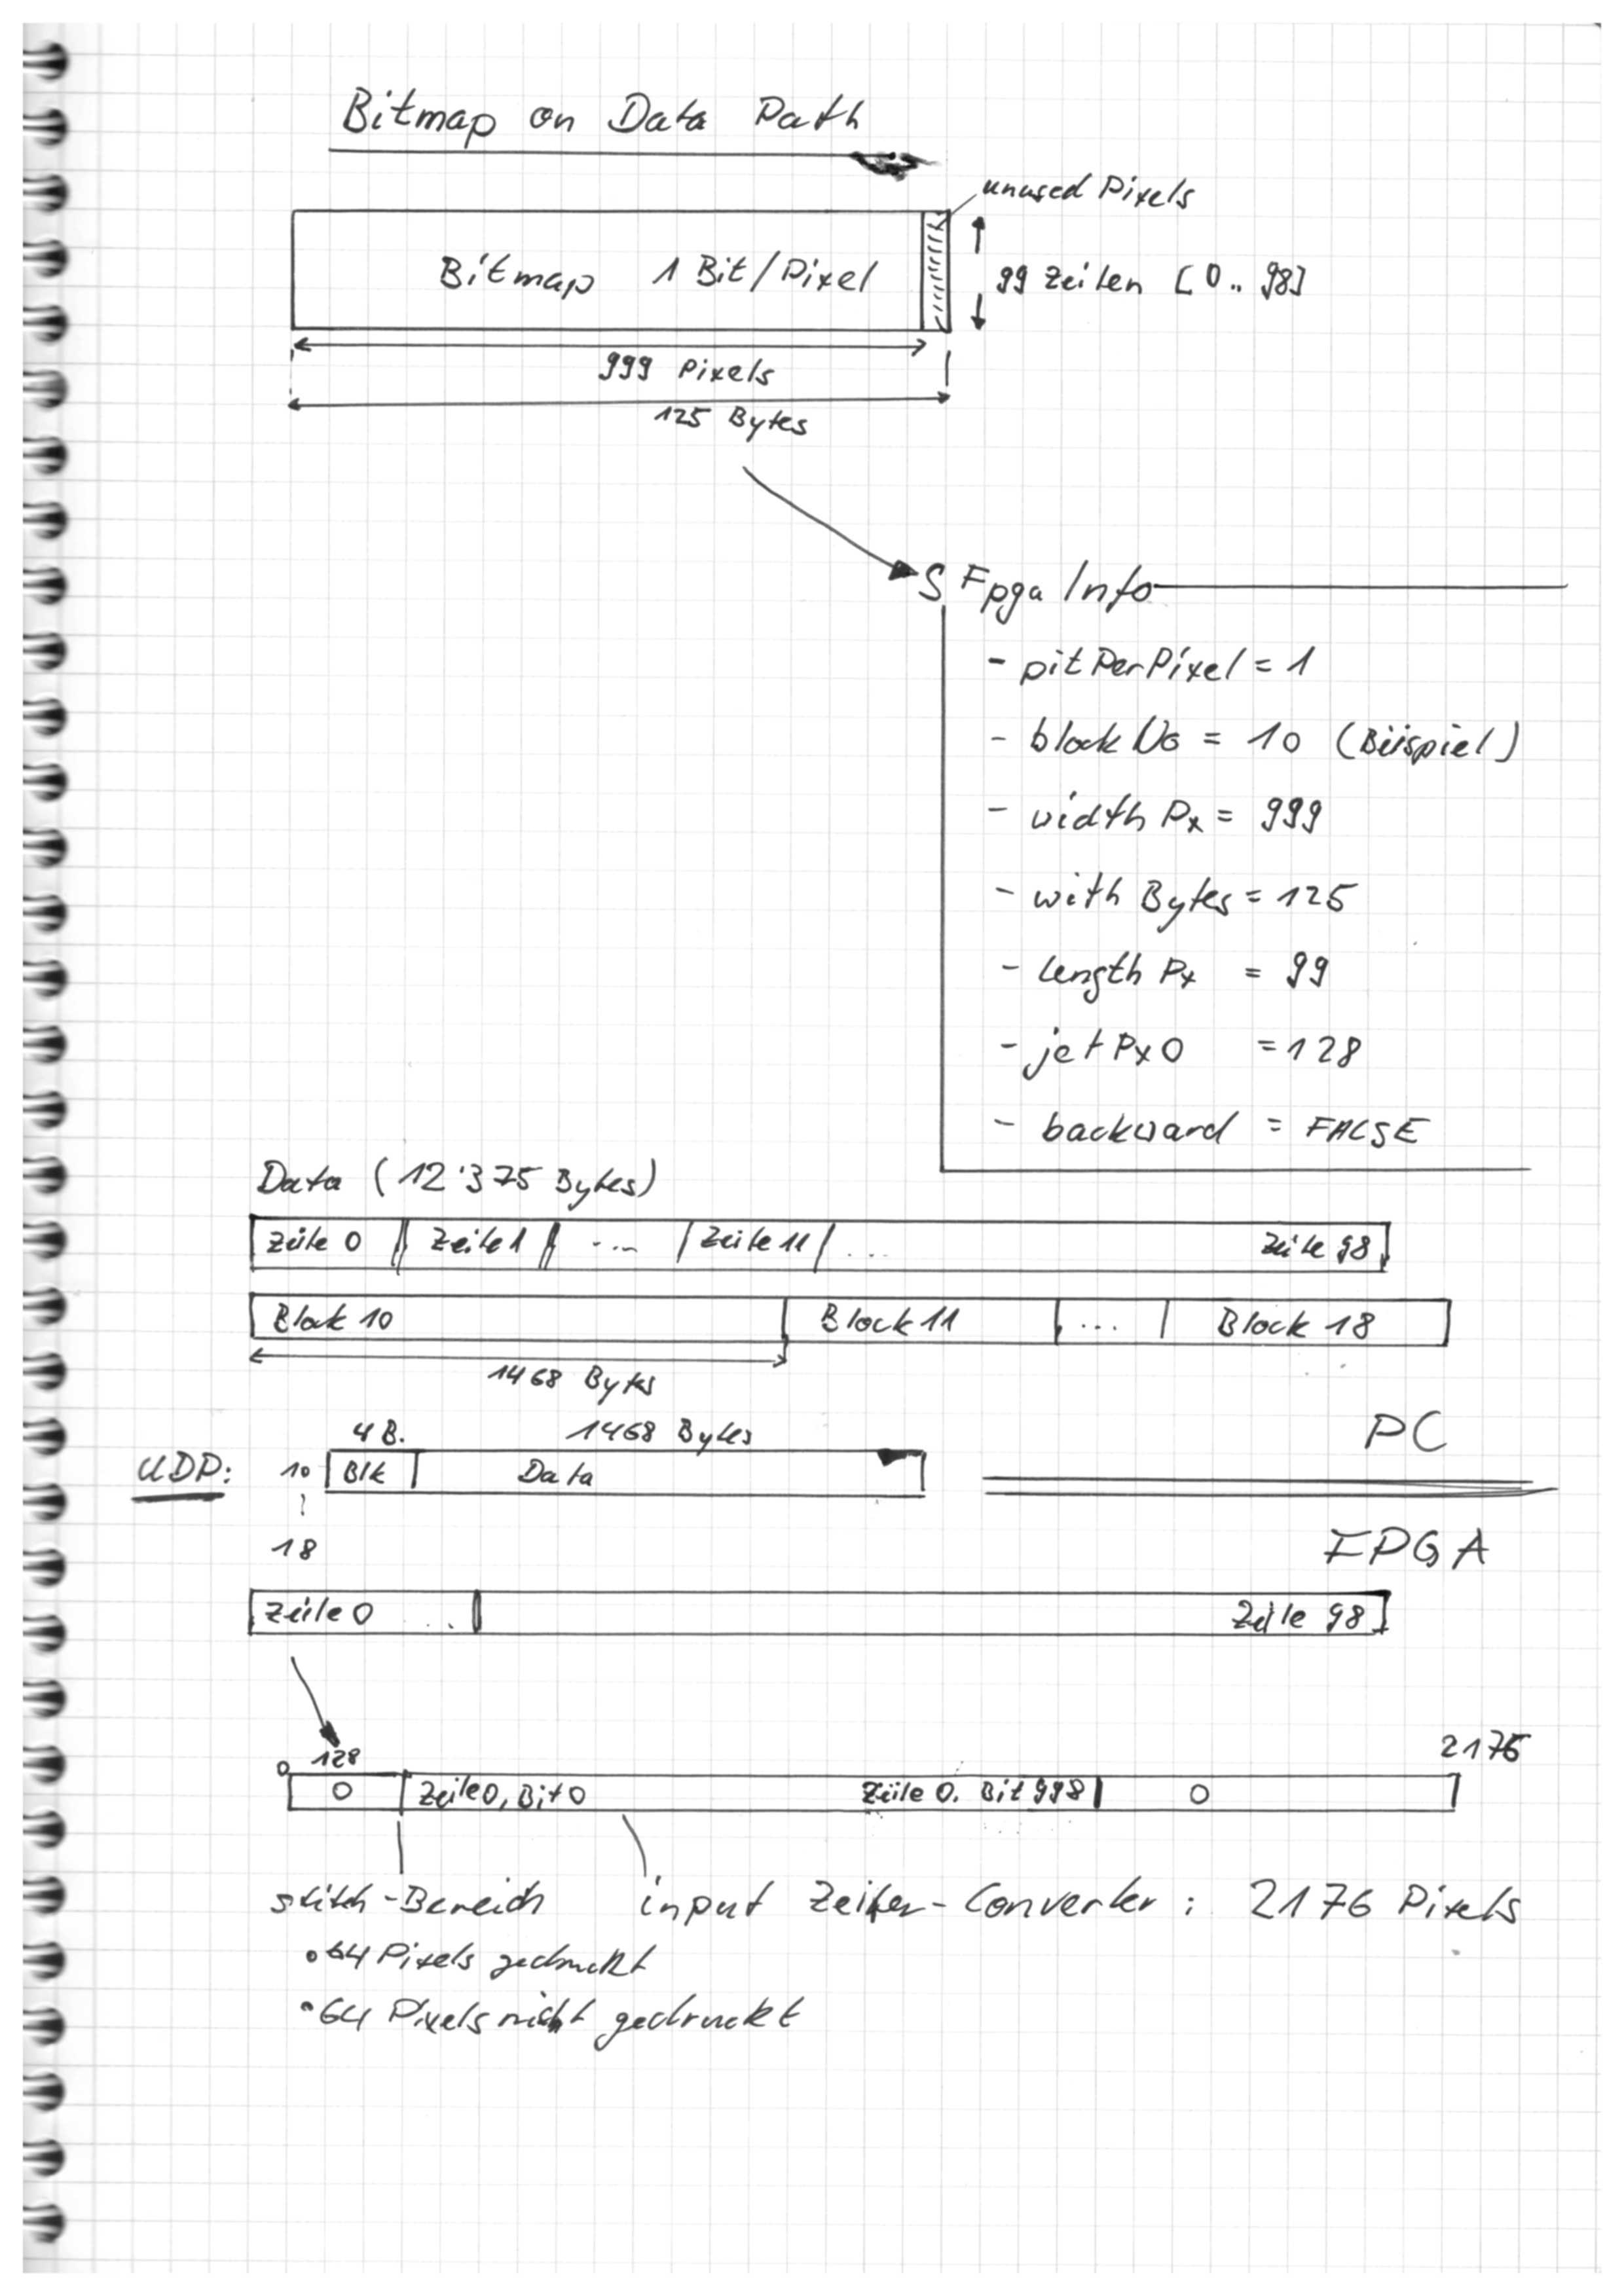 Bitmap on Data Path
unused Pixels
Bitmap 1 Bit/Pixel
99 Zeilen [0..98]
999 Pixels
125 Bytes
SFpgaInfo
- pitPerPixel = 1
- blockNo = 10 (Beispiel)
- widthPx = 999
- withBytes = 125
- lengthPx = 99
- jetPx0 = 128
- backward = FALSE
Data (12'375 Bytes)
Zeile 0 Zeile 1 ... Zeile 11 ... Zeile 98
Block 10 Block 11 ... Block 18
1468 Bytes
PC
4 B. 1468 Bytes
UDP: 10 Blk Data
18
FPGA
Zeile 0 .. Zeile 98
0 128 2175
0 Zeile 0, Bit 0 Zeile 0. Bit 998 0
stitch-Bereich input Zeilen-Converter: 2176 Pixels
• 64 Pixels gedruckt
• 64 Pixels nicht gedruckt